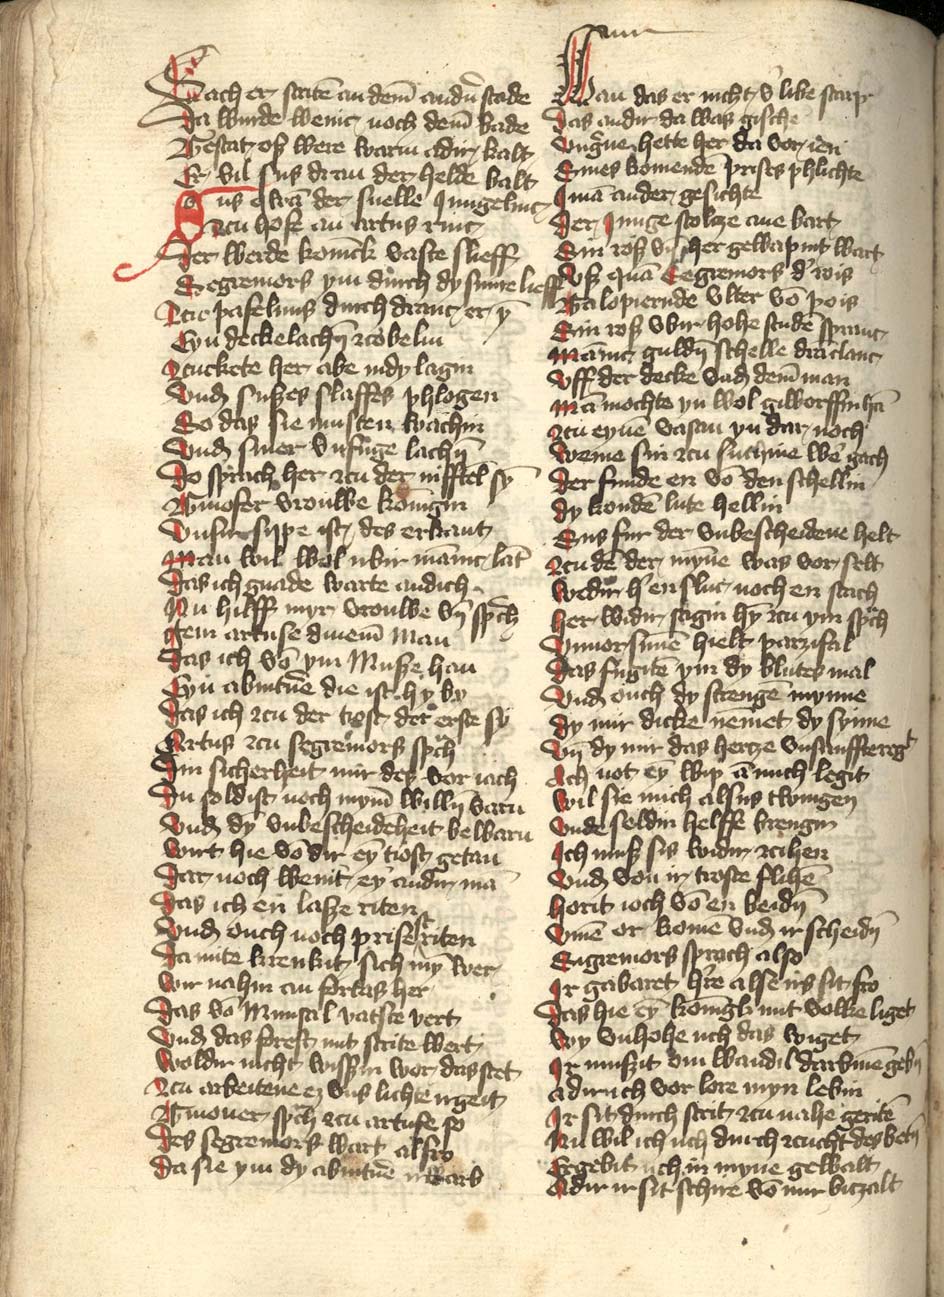 Nach er striten an dem andn stade
Da wurde wenic noch dem bade
Gestat ofz were warm adir kalt
Er vil sus dran der helde balt
Sus qwam der snelle Jungelinc
Zcu hofe an artus rinc
Der werde konick vaste slieff
Segremors ym durch dy snure lieff
Zcu pafeluns durch dranc er y
Eyn deckelachen zcobelin
Zcuckete her abe in dy lagin
Vnd suszes slaffes phlogen
So das sie musten wachin
Vnd siner vnfuge lachen
Do sprach her zcu der nifftel sy
Gmofer vrouwe konigin
Vnsir sippe ist des erkant
Man wil wol ubir manic lat
Das ich gnade warte an dich
Nu hilff myr vrouwe vn sprich
kein artuse dinem man
Das ich vo ym Musze han
Eyn abintue die ist hy by
Das ich zcu der tiost der erste sy
Artus zcu segremors sprach
Din sicherheit mir des vor iach
Du soldist noch mynen willen varn
Vnd dy vnbescheideheit bewarn
Wirt hie vo dir ey tiost getan
Dar noch wenit ey andir ma
Das ich en lasze riten
Vnd ouch noch prise striten
Da mite krenkit sich my wer
Wir nahin an fortas her
Das vo Munsal vatsce vert
Vnd das forest mit strite wert
Woldir nicht wiszin wor das stet
Zcu arbeitene ez vns lichte irgeit
Gmouer sprach zcu artuse so
Des segremors wart alsro
Da sie ym dy abintue irwarb
Wan das er nicht v libe starp
Das andir da was gische
Vngern hette her da vor ien
Eines komende prises phlichte
Ima ander gesichte
Der Junge stoltze ane bart
Ein rosz vn her gewapint wart
Vsz qua Segremors d rois
Galopiernde vlter vo pois
Ein rosz vbir hohe stude spranc
Manic guldin schelle dran clanc
Vff der decke vnd dem man
Ma mochte yn wol geworffin ha
Zcu eyne vasan yn dar noch
Weme sin zcu suchine we gach
Der funde en vo den schellin
Dy konde lute hellin
Sus fur der vnbescheidene helt
Zcu de der myne was vor selt
Wedir h en sluc noch en stach
her widir sagin hy zcu ym sprach
Vnuorsinne hielt parzifal
Das fugite ym dy blutes mal
Vnd ouch dy strenge mynne
dy mir dicke nemet dy synne
Vn dy mir das hertze vnsanffte regt
Ach not ey wip a mich legit
Wil sie mich alsus twingen
Vnde seldin helffe brengin
Ich musz sis widir zcihen
Vnd von ir troste flihe
horit ioch vo en beidin
Vme or kome vnd ir scheidin
Segremors sprach also
Ir gabaret hre alse irs sit fro
Das hie ey konigk mit volke liget
Wy vnhohe uch das wiget
Ir muszit om wandil darvme gebin
adir ich vor lore myn lebin
Ir sit durch strit zcu nahe gerite
Nu wil ich uch durch zcucht des bet
Ergebit uch in myne gewalt
Adir ir sit schire vo mir bitzalt